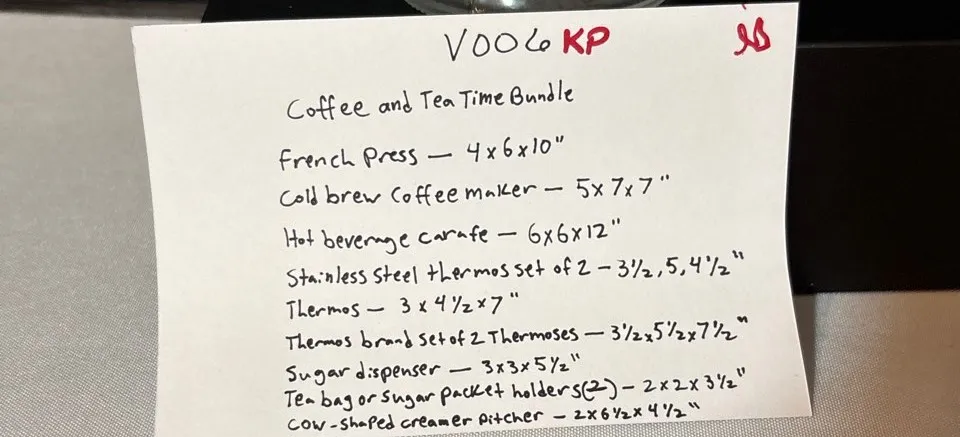 V006 KP
Coffee and Tea Time Bundle
French Press — 4x6x10"
Cold brew coffee maker — 5x7x7"
Hot beverage carafe — 6x6x12"
Stainless steel thermos set of 2 — 3½, 5, 4½"
Thermos — 3 x 4½ x 7"
Thermos brand set of 2 Thermoses — 3½x5½x7½"
Sugar dispenser — 3x3x5½"
Tea bag or sugar packet holders(2) — 2x2x3½"
Cow-shaped creamer pitcher — 2x6½x4½"